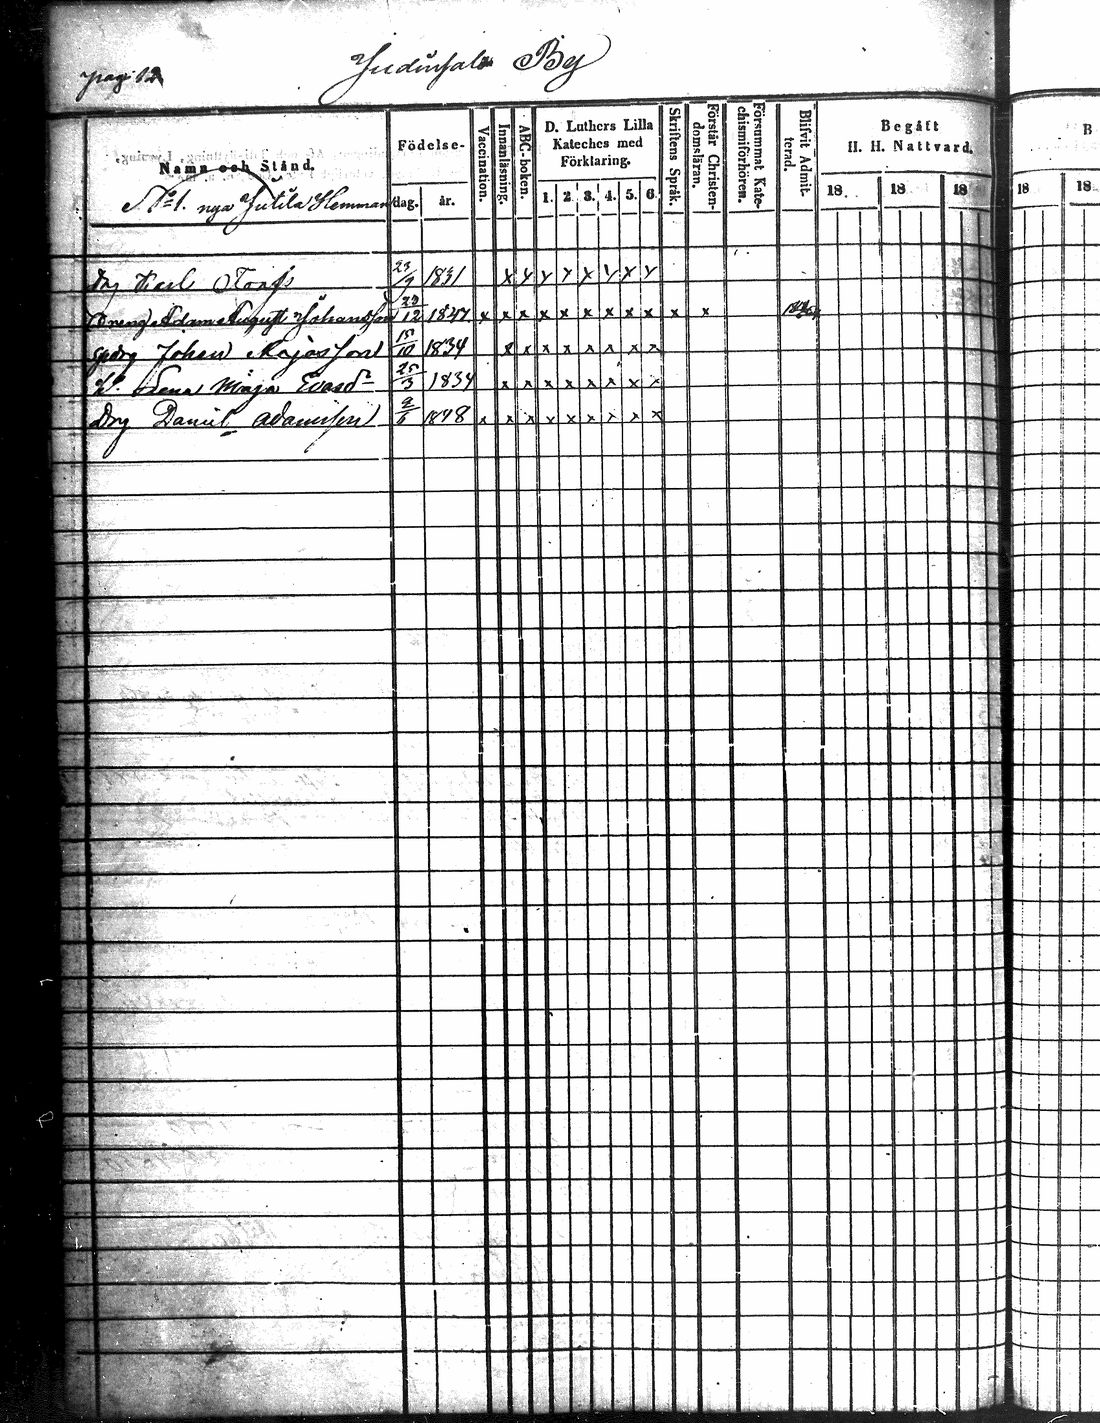 pag: 12
Judinsalo By
Namn och Stånd.
Födelse-
dag.
år.
Vaccination.
Innanläsning.
ABC-boken.
D. Luthers Lilla
Kateches med
Förklaring.
1. 2. 3. 4. 5. 6.
Skriftens Språk.
Förstår Christen-
domsläran.
Försummat Kate-
chismiförhören.
Blifvit Admit-
terad.
Begått
H. H. Nattvard.
18 18 18 18 18
N:o 1. nya Jutila Hemman
Drg Karl 23/9 1831 x x x x x x x x
Dreng Adam August Johansson 29/12 1847 x x x x x x x x x x x
Johan 15/10 1834 x x x x x x x x
H. Lena Maja 25/3 1834 x x x x x x x x
Drg Daniel Adamsson 1848 x x x x x x x x x